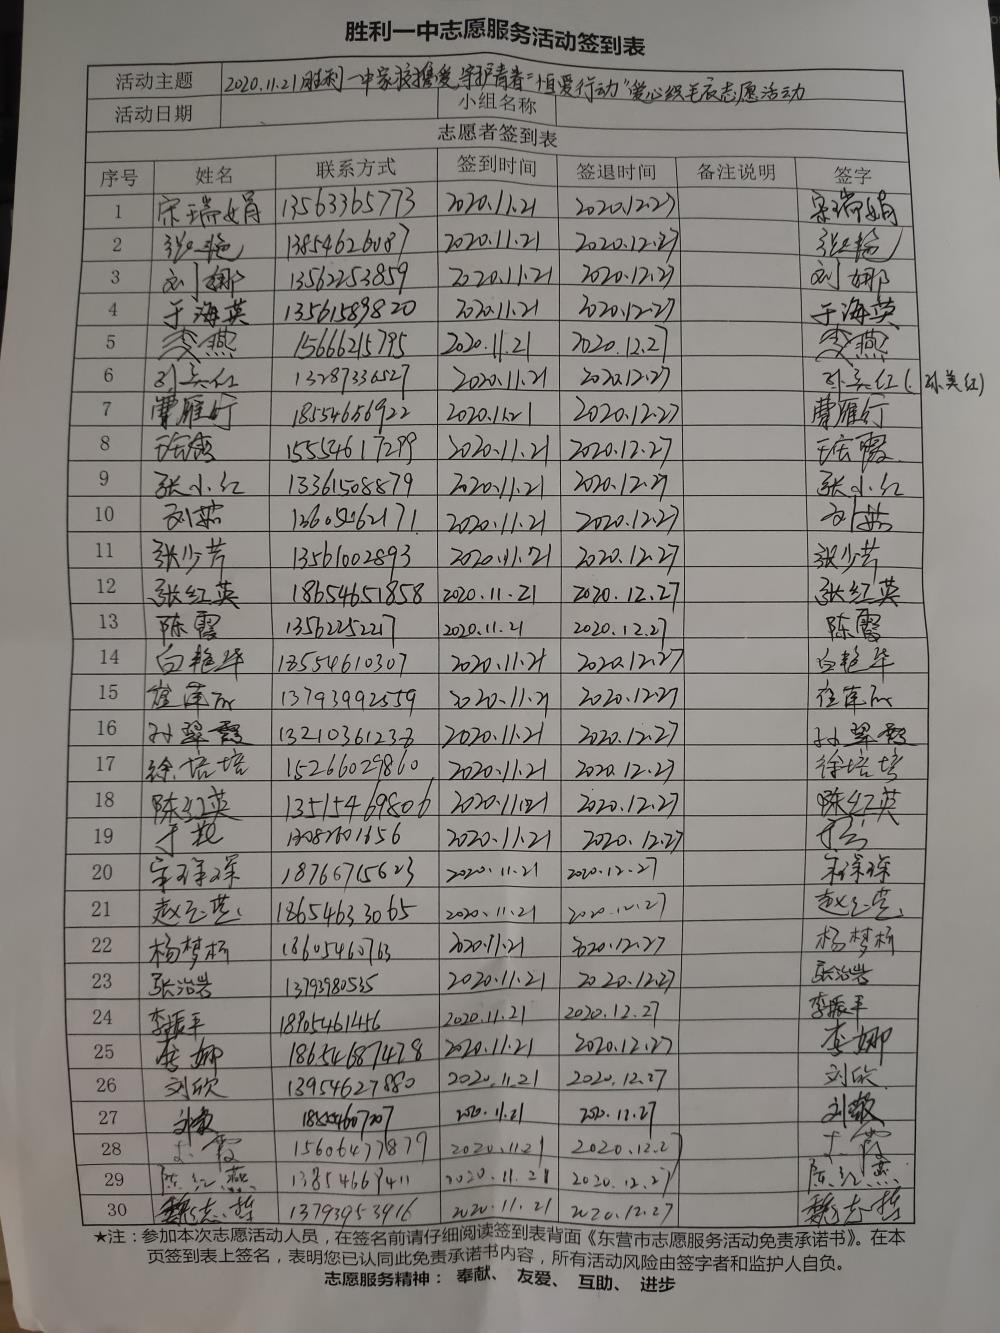 胜利一中志愿服务活动签到表
活动主题 2020.11.21胜利一中家校携爱,守护青春"恒爱行动"爱心织毛衣志愿活动
活动日期 小组名称
志愿者签到表
序号 姓名 联系方式 签到时间 签退时间 备注说明 签字
1 宋瑞娟 13563365773 2020.11.21 2020.12.27 宋瑞娟
2 张艳 13854626087 2020.11.21 2020.12.27 张艳
3 刘娜 13562253859 2020.11.21 2020.12.27 刘娜
4 于海英 13561589820 2020.11.21 2020.12.27 于海英
5 李燕 15666215795 2020.11.21 2020.12.27 李燕
6 孙美红 13287336527 2020.11.21 2020.12.27 孙美红(孙美红)
7 曹雁行 18554656922 2020.11.21 2020.12.27 曹雁行
8 15554617299 2020.11.21 2020.12.27
9 张小红 13361508879 2020.11.21 2020.12.27 张小红
10 刘茹 13605462171 2020.11.21 2020.12.27 刘茹
11 张少芹 13561002893 2020.11.21 2020.12.27 张少芹
12 张红英 18654651858 2020.11.21 2020.12.27 张红英
13 陈霞 13562252217 2020.11.21 2020.12.27 陈霞
14 白艳华 18554610307 2020.11.21 2020.12.27 白艳华
15 13793992559 2020.11.21 2020.12.27
16 孙翠霞 13210361238 2020.11.21 2020.12.27 孙翠霞
17 徐培培 15266029860 2020.11.21 2020.12.27 徐培培
18 陈红英 13515469806 2020.11.21 2020.12.27 陈红英
19 2020.11.21 2020.12.27
20 宋琛琛 18766715623 2020.11.21 2020.12.27 宋琛琛
21 18654633065 2020.11.21 2020.12.27
22 杨梦杨 18605460763 2020.11.21 2020.12.27 杨梦杨
23 张治岩 13793980535 2020.11.21 2020.12.27 张治岩
24 李振平 18905461456 2020.11.21 2020.12.27 李振平
25 李娜 18654687478 2020.11.21 2020.12.27 李娜
26 刘欣 13954627880 2020.11.21 2020.12.27 刘欣
27 刘敏 2020.11.21 2020.12.27 刘敏
28 15606477879 2020.11.21 2020.12.27
29 陈红燕 13854669411 2020.11.21 2020.12.27 陈红燕
30 魏志哲 13793953916 2020.11.21 2020.12.27 魏志哲
★注：参加本次志愿活动人员，在签名前请仔细阅读签到表背面《东营市志愿服务活动免责承诺书》。在本
页签到表上签名，表明您已认同此免责承诺书内容，所有活动风险由签字者和监护人自负。
志愿服务精神： 奉献、 友爱、 互助、 进步